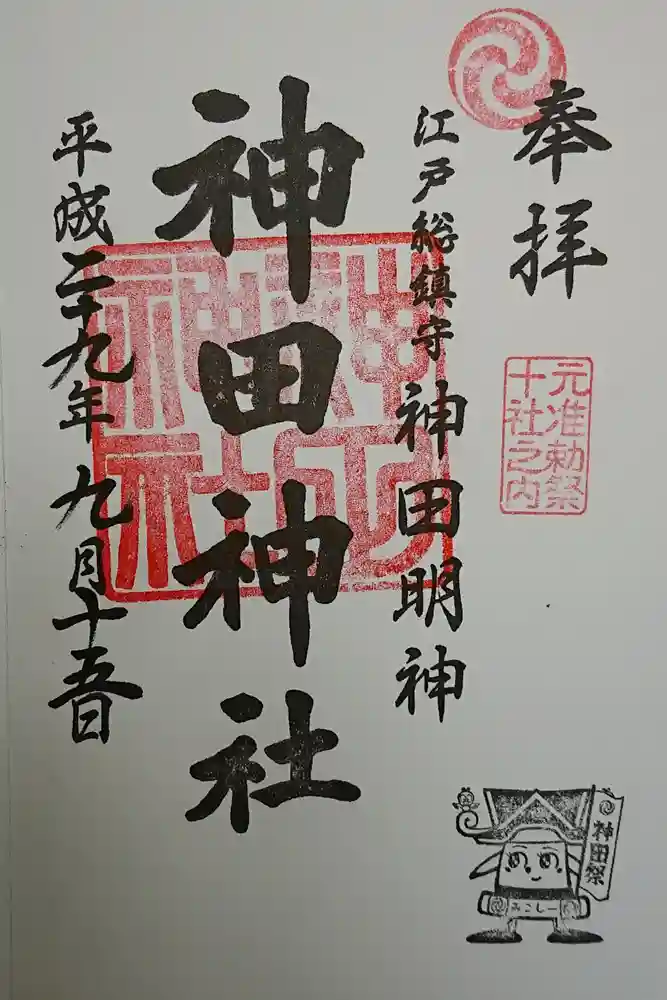 奉拝
元准勅祭
十社之内
江戸総鎮守 神田明神
神田神社
平成二十九年 九月十五日
神田祭
みこしー